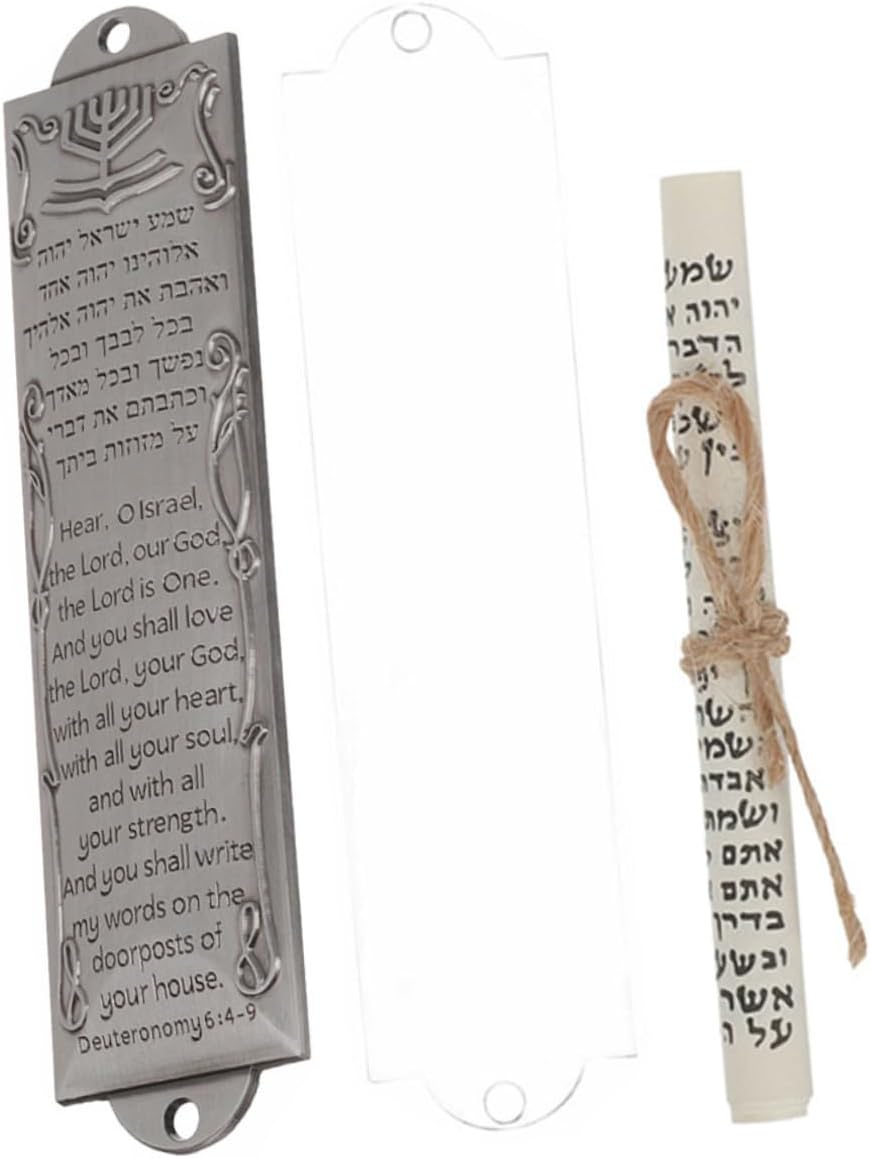 שמע ישראל יהוה
אלוהינו יהוה אחד
ואהבת את יהוה אלהיך
בכל לבבך ובכל
נפשך ובכל מאדך
וכתבתם את דברי
על מזוזות ביתך
Hear, O Israel,
the Lord, our God,
the Lord is One.
And you shall love
the Lord, your God,
with all your heart,
with all your soul,
and with all
your strength.
And you shall write
my words on the
doorposts of
your house.
Deuteronomy 6:4-9
שמע
יהוה
הדבר
ושמת
אתם
אתם
בדרך
ובשע
אשר
על ה